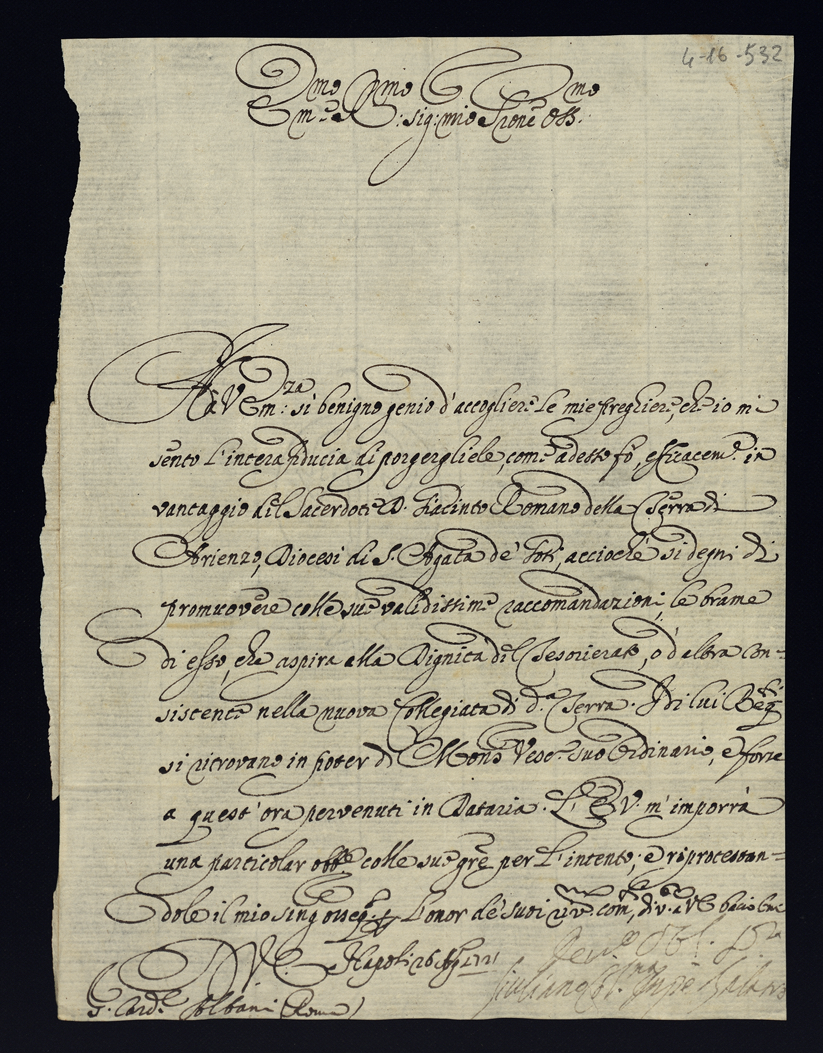 4-16-532
Emo Rmo
Sig: mio Prone oss:
Hà V Emza sì benigno genio d'accogliere le mie preghiere, che io mi
sento l'intera fiducia di porgergliele, come adesso fò, efficacemte in
vantaggio del Sacerdote D. Giacinto Romano della Terra di
Arienzo, Diocesi di S. Agata de' Goti, acciochè si degni di
promuovere colle sue validissime raccomandazioni le brame
di esso, che aspira alla Dignità del Tesorierato, ò d'altra con=
sistente nella nuova Collegiata di da Terra. I di lui
si ritrovano in poter di Monsr Vesco suo Ordinario, e forse
a quest'ora pervenuti in Dataria. L'E V. m'imporrà
una particolar obbne colle sue gre per l'intento; e riprotestan=
dole il mio sing osseqo, coll'onor de' suoi comdi, a V E bacio
Napoli 26 Agto
S. Cardl Albani (Roma)